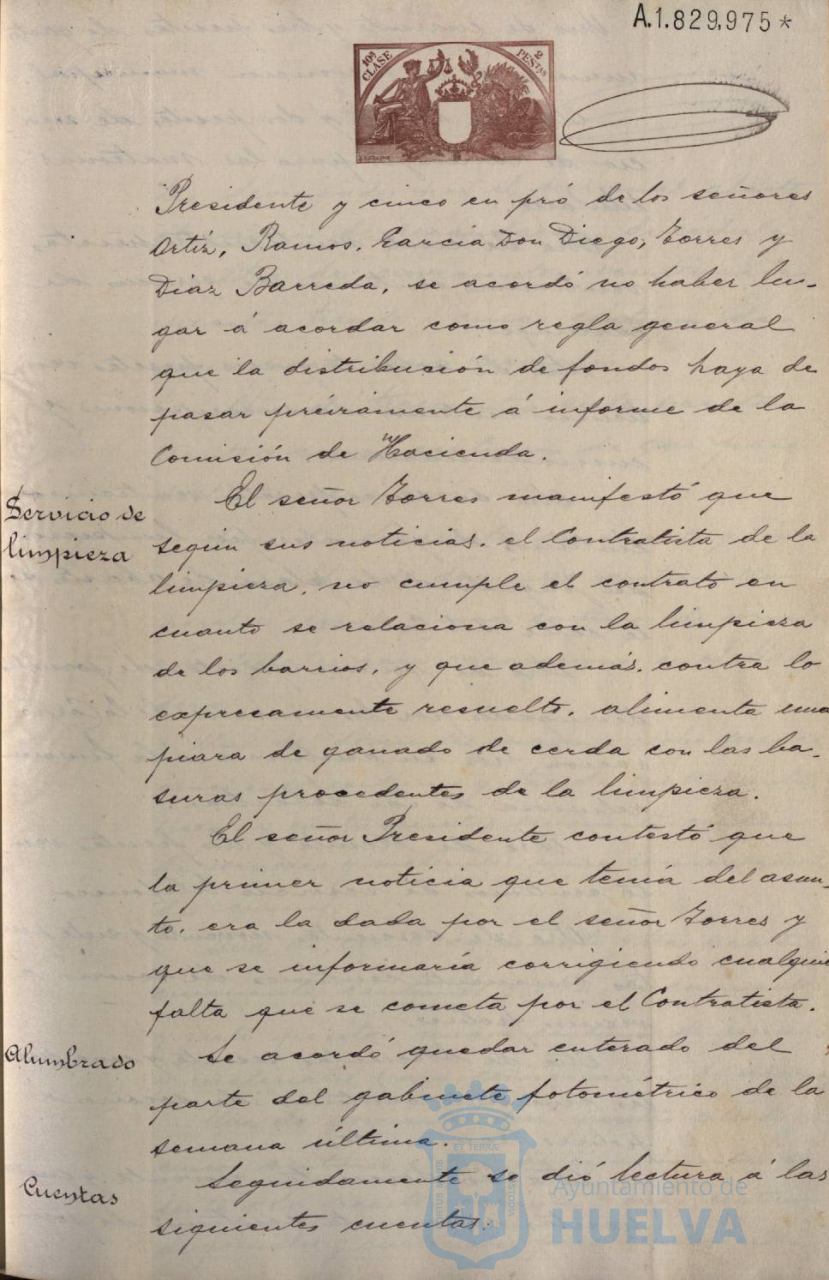 A.1.829,975*
10ª CLASE
2 PESETAS
Presidente y cinco en pró de los señores
Ortíz, Ramos, García Don Diego, Torres y
Díaz Barreda, se acordó no haber lu-
gar á acordar como regla general
que la distribución de fondos haya de
pasar préviamente á informe de la
Comisión de Hacienda.
Servicio de
limpieza
El señor Torres manifestó que
segun sus noticias, el Contratista de la
limpieza, no cumple el contrato en
cuanto se relaciona con la limpieza
de los barrios, y que además, contra lo
expresamente resuelto, alimenta una
piara de ganado de cerda con las ba-
suras procedentes de la limpieza.
El señor Presidente contestó que
la primer noticia que tenía del asun-
to, era la dada por el señor Torres y
que se informaría corrigiendo cualquie
falta que se cometa por el Contratista.
Alumbrado
Se acordó quedar enterado del
parte del gabinete fotométrico de la
semana última.
Cuentas
Seguidamente se dió lectura á las
siguientes cuentas:
Ayuntamiento de
HUELVA